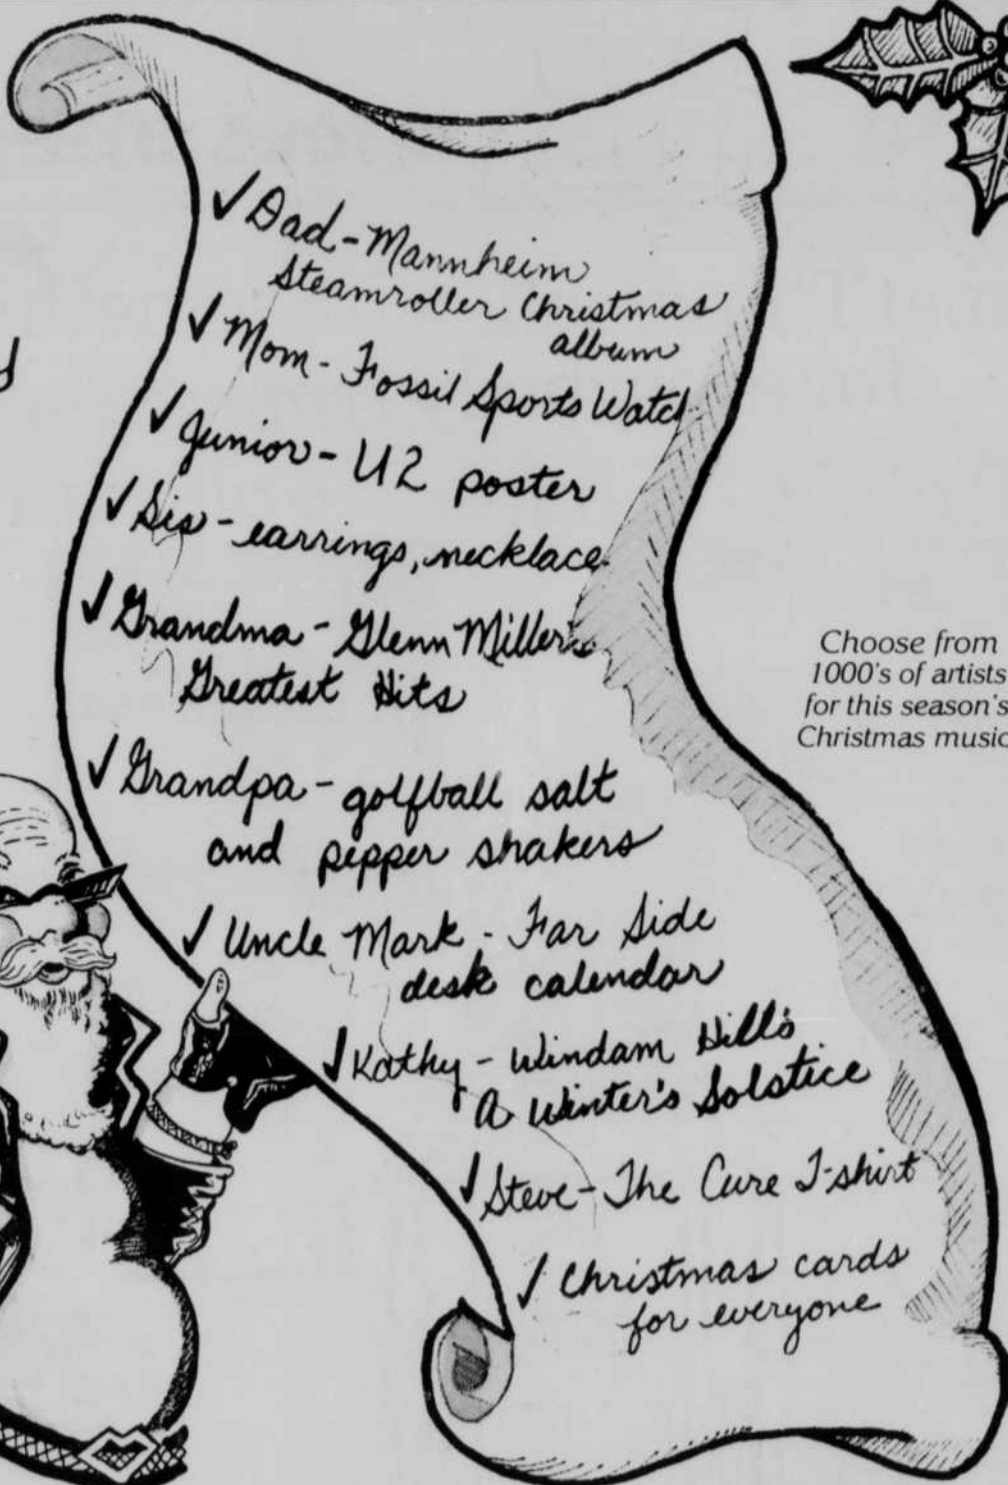 ✓ Dad - Mannheim
Steamroller Christmas
album
✓ Mom - Fossil Sports Watch
✓ Junior - U2 poster
✓ Sis - earrings, necklace
✓ Grandma - Glenn Miller's
Greatest Hits
✓ Grandpa - golfball salt
and pepper shakers
✓ Uncle Mark - Far Side
desk calendar
✓ Kathy - Windam Hill's
A Winter's Solstice
✓ Steve - The Cure T-shirt
✓ Christmas cards
for everyone
Choose from
1000's of artists
for this season's
Christmas music